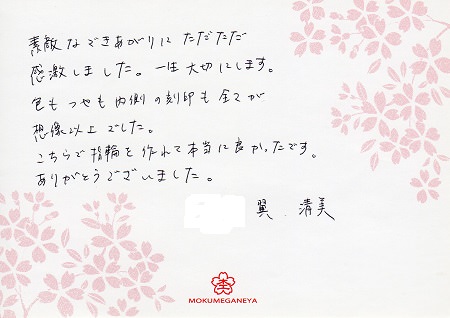 素敵なできあがりにただただ
感激しました。一生大切にします。
色もつやも内側の刻印も全てが
想像以上でした。
こちらで指輪を作れて本当に良かったです。
ありがとうございました。
翼 . 清美
MOKUMEGANEYA